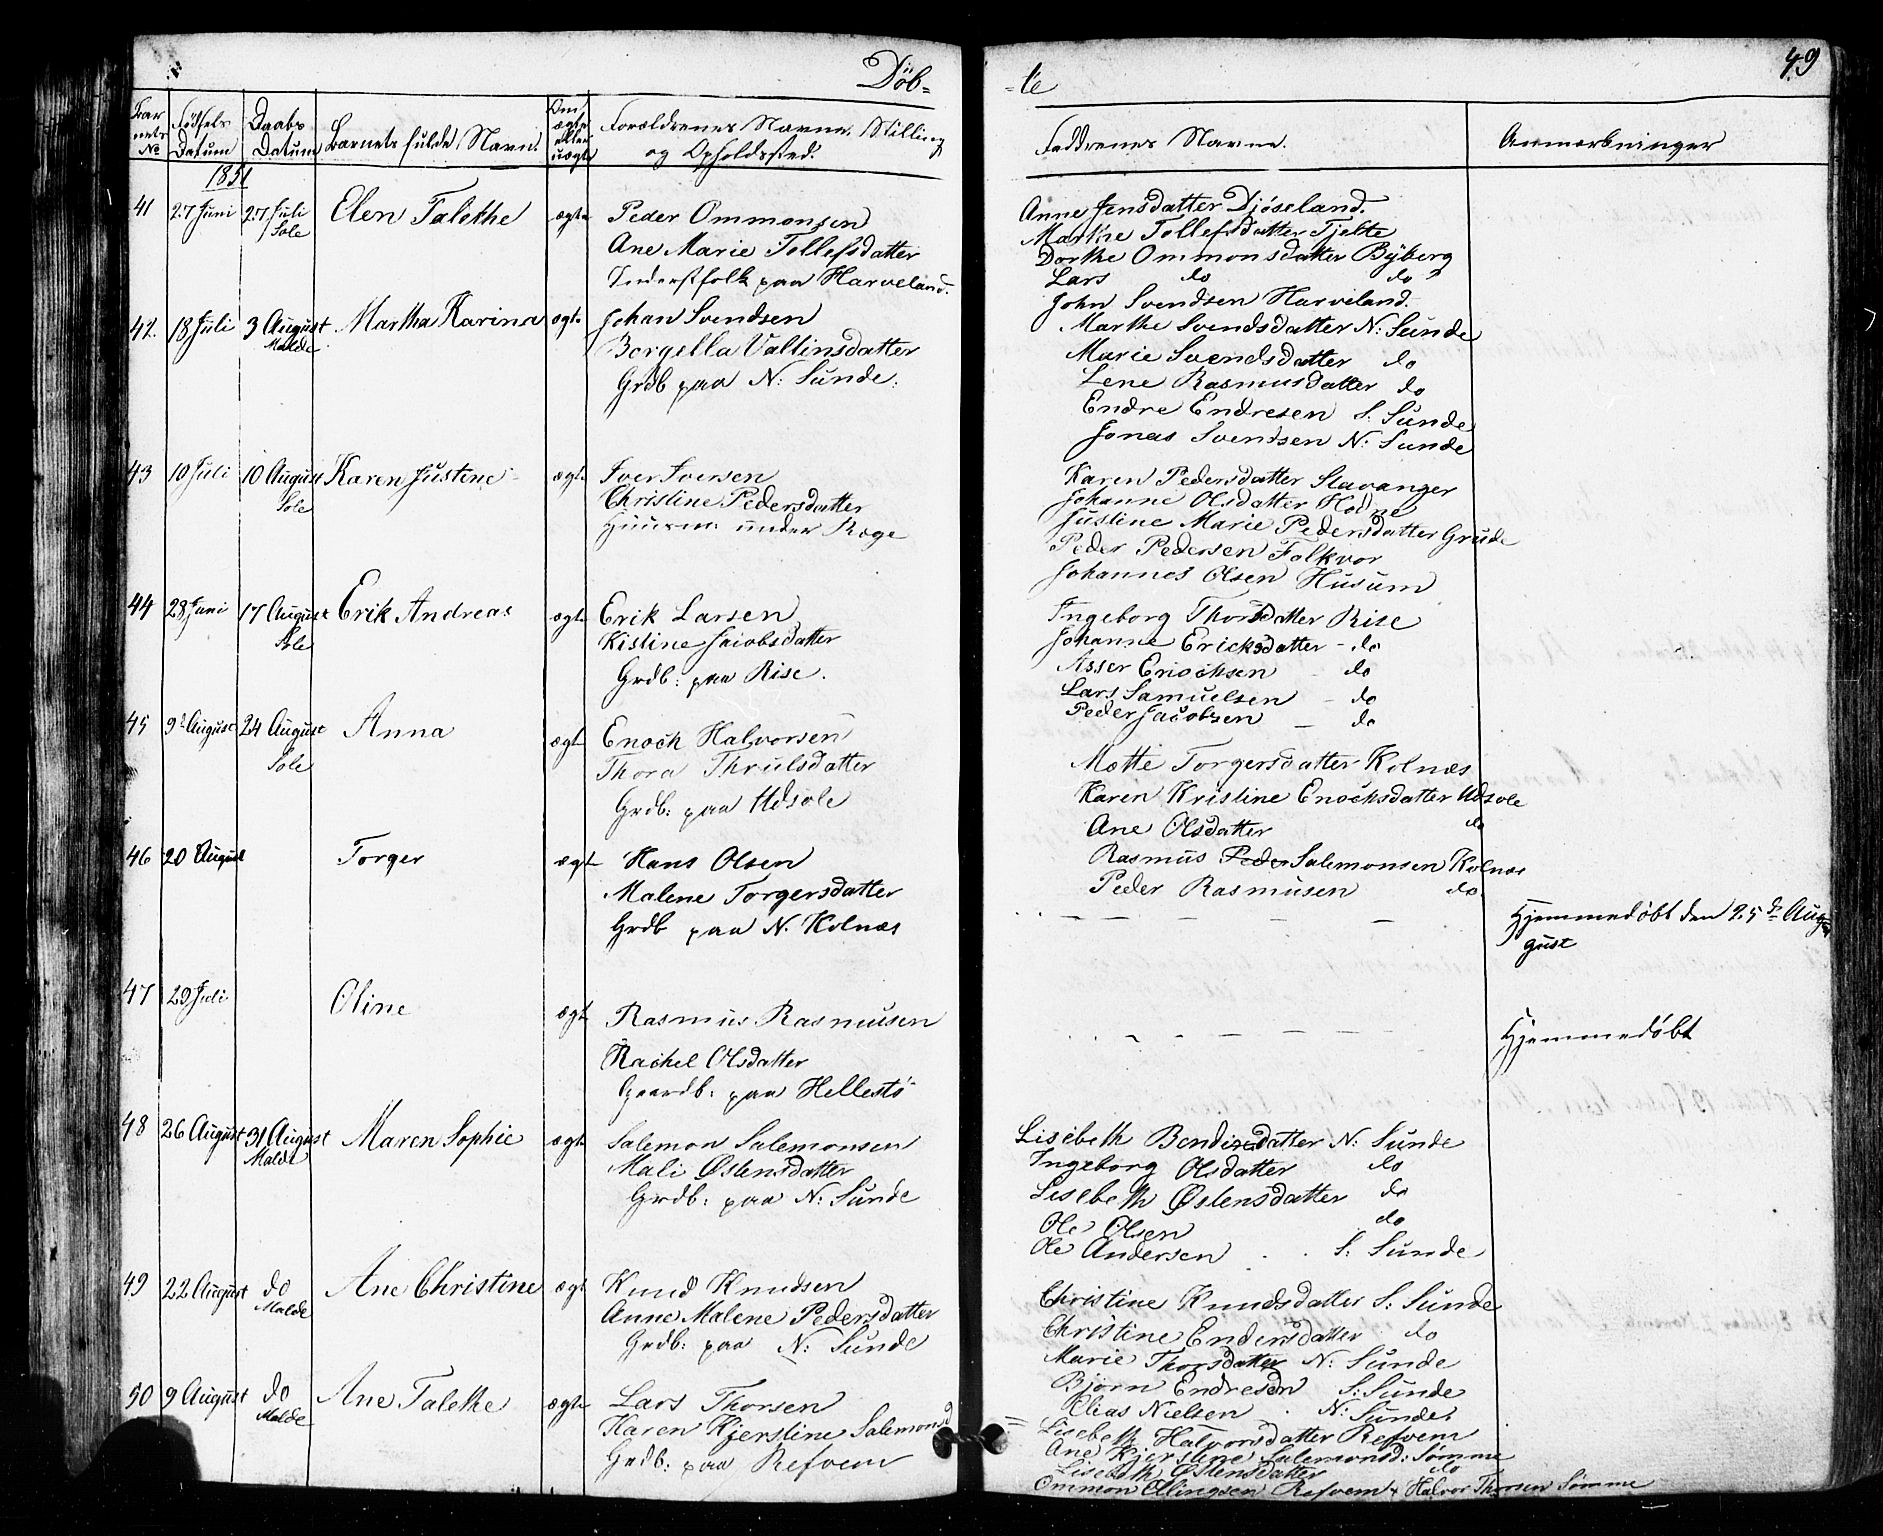 Döb-
-te
49
Bar nets No
Fødsels Datum
Daabs Datum
Barnets fulde Navn.
Om ægte eller uægte
Forældrenes Navne, Stilling og Opholdssted.
Faddrenes Navne.
Anmærkninger
1851
41 27 Juni 27 Juli Sole Elen Talethe ægte Peder Ommonsen
Ane Marie Tollefsdatter
Inderstfolk paa Harveland.
Anne Jensdatter Djöseland.
Marthe Tollefsdatter Tjelte
Dorthe Ommonsdatter Byberg
Lars do do
John Svendsen Harveland.
42. 18 Juli 3 August Malde Martha Karina ægte Johan Svendsen
Bergella Vallinsdatter
Grdb paa N: Sunde.
Marthe Svendsdatter N: Sunde
Marie Svendsdatter do
Lene Rasmusdatter do
Endre Endresen S. Sunde
Jonas Svendsen N: Sunde
43 10 Juli 10 August Sole Karen Justine ægte Iver Iversen
Christine Pedersdatter
Huusm: under Røge
Karen Pedersdatter Stavanger
Johanne Olsdatter Hodne
Justine Marie Pedersdatter Grude
Peder Pedersen Folkvor
Johannes Olsen Husum
44 28 Juni 17 August Sole Erik Andreas ægte Erik Larsen
Kistine Jacobsdatter
Grdb: paa Rise.
Ingeborg Thorsdatter Rise
Johanne Ericksdatter - do
Asser Enochsen do
Lars Samuelsen - do
Peder Jacobsen - do
45 9d August 24 August Sole Anna ægte Enoch Halvorsen
Thora Thrulsdatter
Grdb: paa Udsole
Mette Torgersdatter Kolnæs
Karen Kristine Enochsdatter Udsole
Ane Olsdatter do
Rasmus Peder Salemonsen Kolnæs
Peder Rasmusen do
46 20 August Torger ægte Hans Olsen
Malene Torgersdatter
Grdb paa N. Kolnæs
Hjemmedøbt den 25de Aug
gust
47 29 Juli Oline ægte Rasmus Rasmusen
Rachel Olsdatter
Gaardb: paa Hellestö
Hjemmedøbt
48 26 August 31 August Malde Maren Sophie ægte Salemon Salemonsen
Mali Østensdatter
Grdb: paa N: Sunde
Lisebeth Bendixdatter N: Sunde
Ingeborg Olsdatter do
Lisebeth Østensdatter do
Ole Olsen do
Ole Andersen S: Sunde
49 22 August do Malde Ane Christine ægte Knud Knudsen
Anne Malene Pedersdatter
Grdb: paa N: Sunde
Christine Knudsdatter S: Sunde
Christine Endersdatter do
Marie Thorsdatter N: Sunde
Bjørn Endresen S: Sunde
Elias Nielsen N: Sunde
50 9 August do Malde Ane Talethe ægte Lars Thorsen
Karen Kjerstine Salemonsd
Grdb: paa Refvem
Lisebeth Halvorsdatter Refvem
Ane Kjerstine Salemonsd: Sømme
Lisebeth Østensdatter do
Ommon Ellingsen Refvem & Halvor Thorsen Sømme